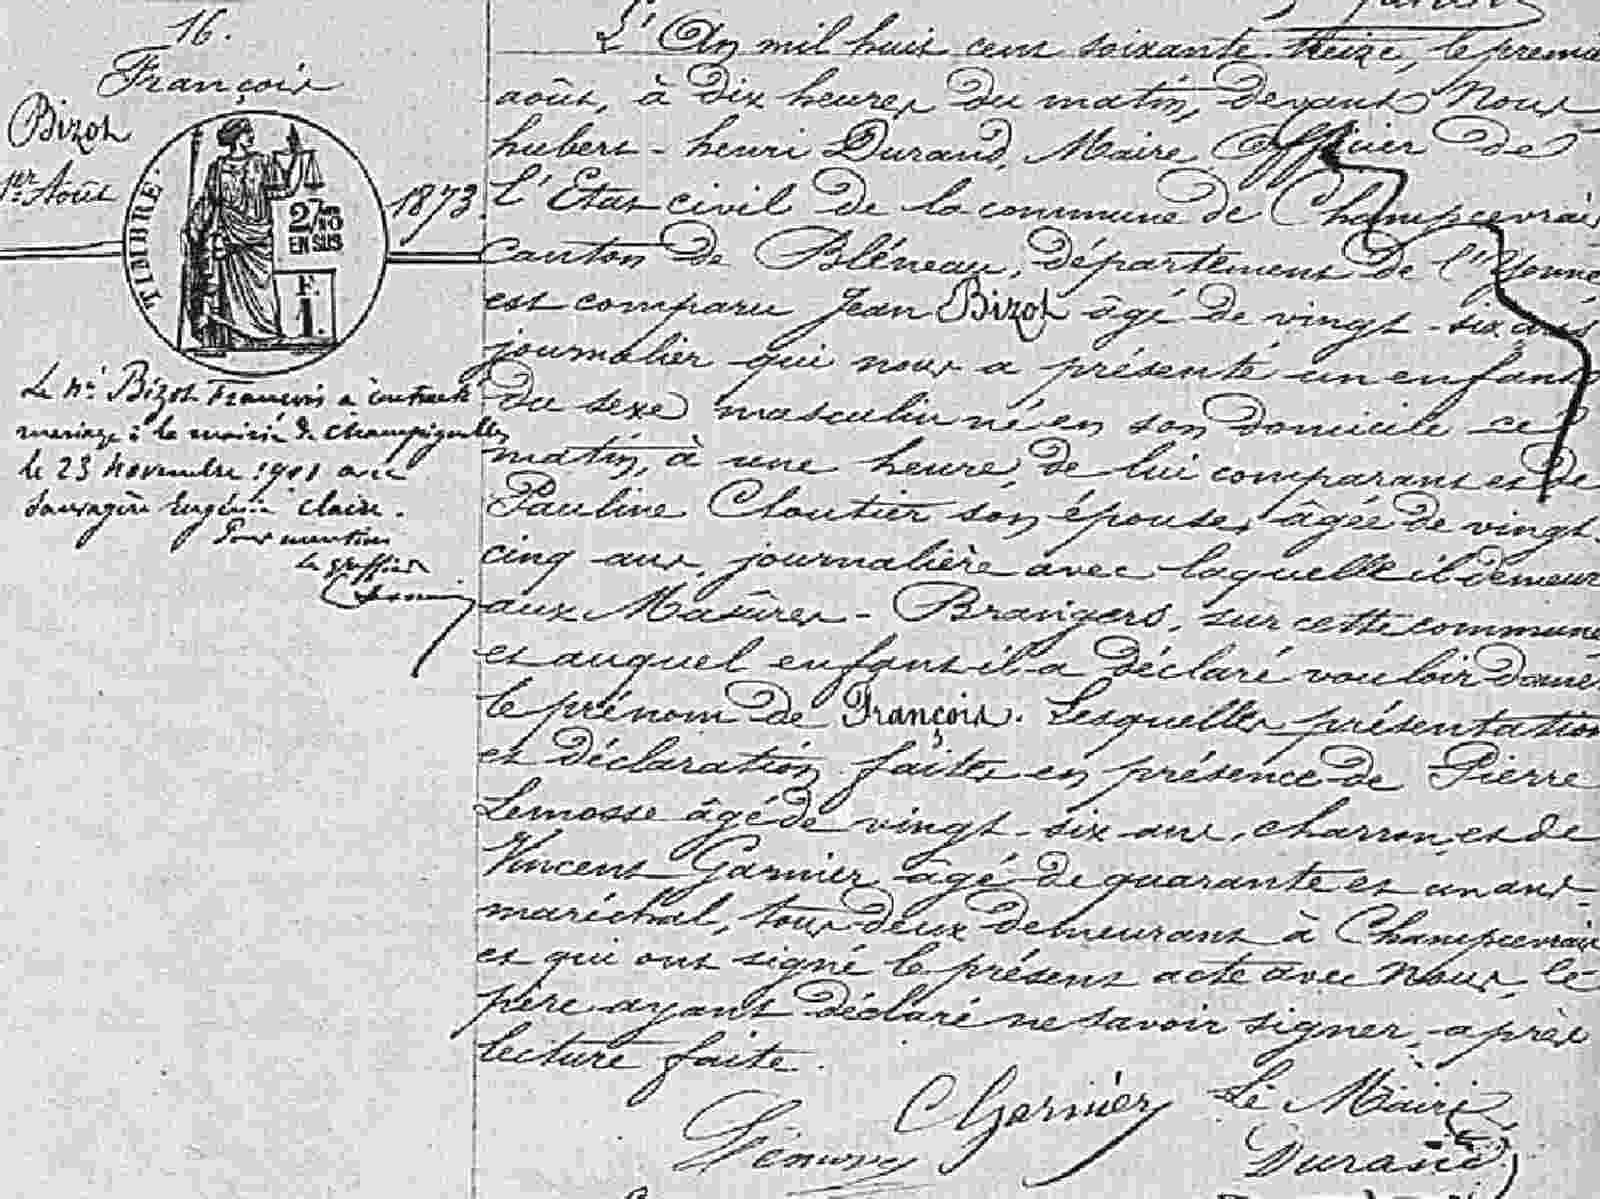 16.
François
Bizot
1er Août 1873.
TIMBRE.
2/10
EN SUS
F.
1.
Le né Bizot François a contracté
mariage à la mairie de Champignelles
le 23 Novembre 1901 avec
Sauvagère Eugénie Claire.
Pour mention
Le greffier
L'An mil huit cent soixante treize, le premier
août, à dix heures du matin, devant Nous
hubert-henri Durand, Maire Officier de
l'Etat civil de la commune de Champcevrais
canton de Bléneau, département de l'Yonne
est comparu Jean Bizot âgé de vingt-six ans
journalier qui nous a présenté un enfant
du sexe masculin né en son domicile ce
matin, à une heure, de lui comparant et de
Pauline Cloutier son épouse, âgée de vingt
cinq ans, journalière avec laquelle il demeure
aux Masures-Brangers, sur cette commune
et auquel enfant il a déclaré vouloir donner
le prénom de François. Lesquelles présentation
et déclaration faites en présence de Pierre
Lemosse âgé de vingt-six ans, charron, et de
Vincent Garnier âgé de quarante et un ans
maréchal, tous deux demeurant à Champcevrais
et qui ont signé le présent acte avec Nous, le
père ayant déclaré ne savoir signer, après
lecture faite.
Garnier Le Maire
Durand